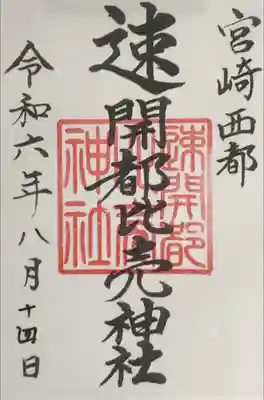 宮崎西都
速開都比売神社
令和六年八月十四日
速開都
神社